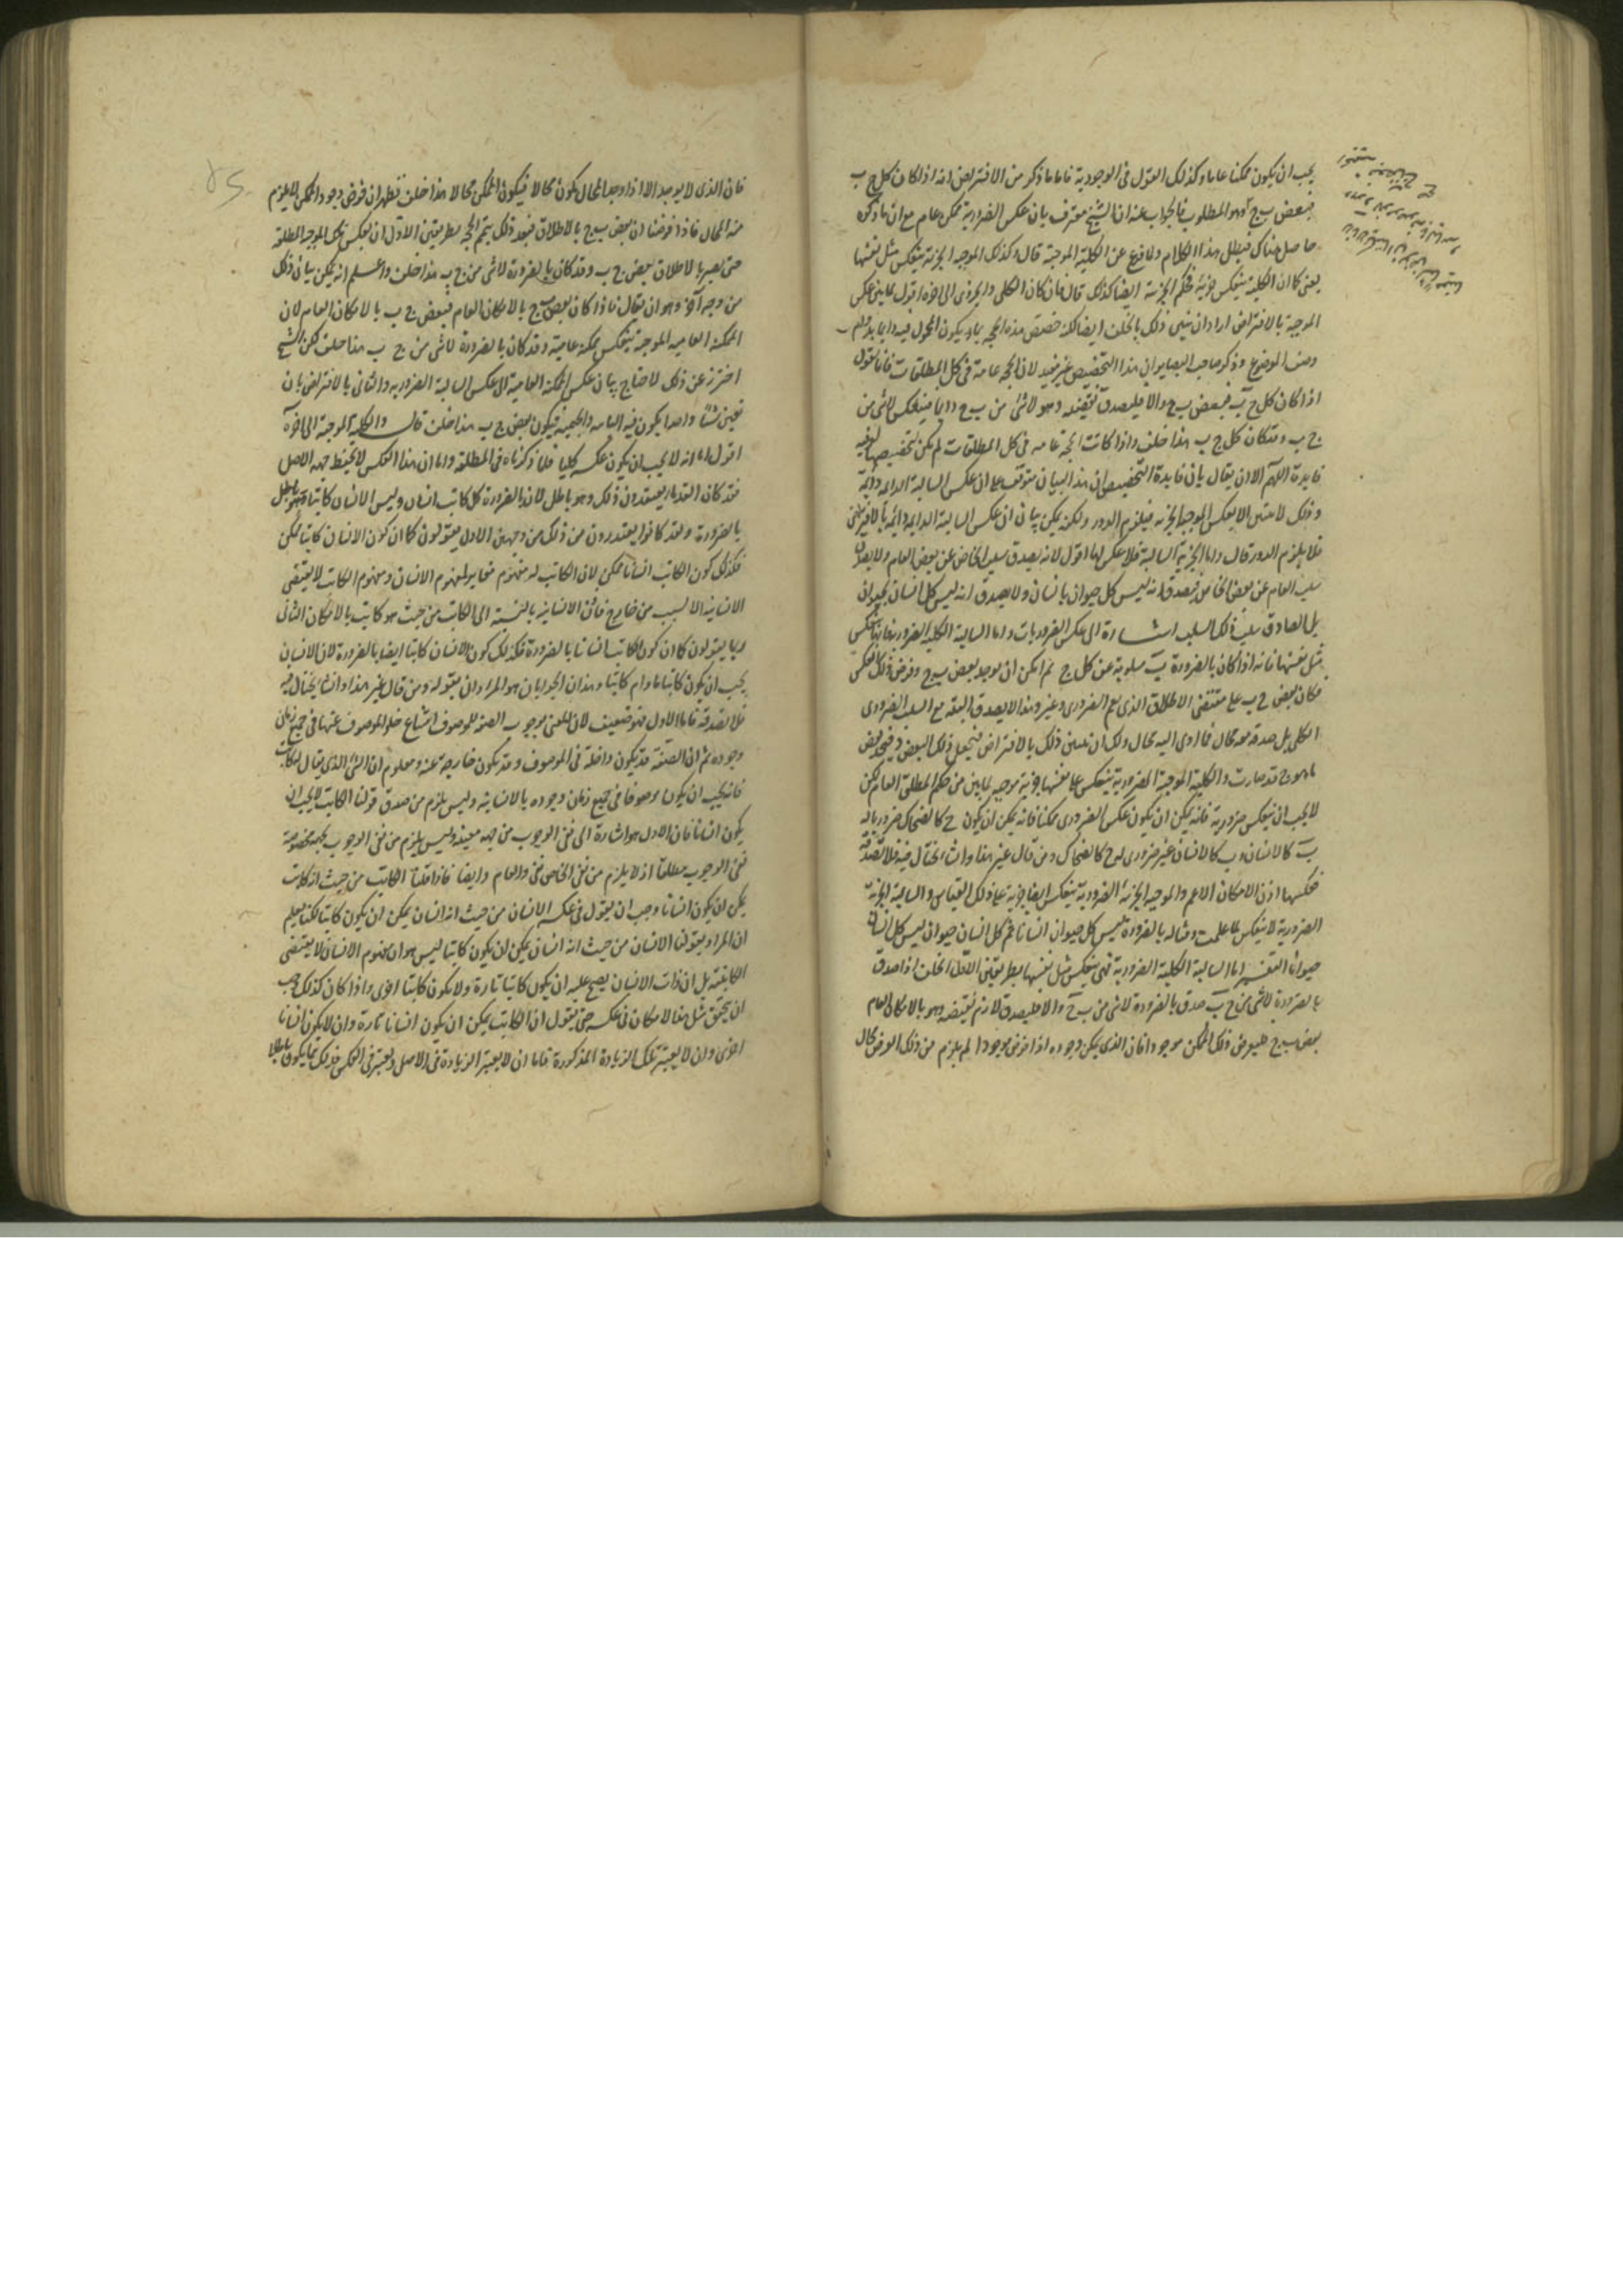 يجب ان يكون ممكنا عاما وكذلك القول فى الوجودية فاما ما ذكر من الافتراض انه اذا كان كل ج ب
فبعض ب ج وهو المطلوب فالجواب عنه ان الشيخ معترف بان عكس الضرورية ممكن عام مع ان ما ذكره
حاصل هناك فبطل هذا الكلام ولا فرغ عن الكلية الموجبة قال وكذلك الموجبة الجزئية تنعكس مثل نفسها
يعنى كما ان الكلية تنعكس جزئية فحكم الجزئية ايضا كذلك قال فان كان الكلى والجزوى الى اخره اقول لما بين عكس
الموجبة بالافتراض اراد ان يبين ذلك بالخلف ايضا لكنه خصص هذه الحجة بما يكون المحمول فيه دايما بدوام
وصف الموضوع وذكر صاحب البصاير ان هذا التخصيص غير مفيد لان الحجة عامة فى كل المطلقات فانا نقول
اذا كان كل ج ب فبعض ب ج والا فليصدق نقيضه وهو لا شئ من ب ج دايما فينعكس لا شئ من
ج ب وقد كان كل ج ب هذا خلف واذا كانت الحجة عامة فى كل المطلقات لم يكن لتخصيصها
فايدة اللهم الا ان يقال بان فايدة التخصيص ان هذا البيان متوقف على ان عكس السالبة الدائمة دائمة
وذلك لا يتبين الا بعكس الموجبة الجزئية فيلزم الدور ولكن يمكن بيان ان عكس السالبة الدايمة دائمة بالافتراض
فلا يلزم الدور قال واما الجزئية السالبة فلا عكس لها اقول لانه يصدق سلب الخاص عن بعض العام ولا يصدق
سلب العام عن بعض الخاص فيصدق انه ليس كل حيوان بانسان ولا يصدق انه ليس كل انسان بحيوان
بل الصادق سلب ذلك السلب اشارة الى عكس الضروريات واما السالبة الكلية الضرورية فانها تنعكس
مثل نفسها فانه اذا كان بالضرورة ب مسلوبة عن كل ج ثم امكن ان يوجد بعض ب ج وفرض ذلك انعكس
فكان بعض ج ب على مقتضى الاطلاق الذى يعم الضرورى وغيره وهذا لا يصدق البتة مع السلب الضرورى
الكلى بل صدقه معه محال فما ادى اليه محال ولك ان تبين ذلك بالافتراض فتجعل ذلك البعض د فتجد بعض
ما هو ج قد صار ب والكلية الموجبة الضرورية تنعكس على نفسها جزئية موجبة لما بين من حكم المطلق العام لكن
لا يجب ان تنعكس ضرورية فانه يمكن ان يكون عكس الضرورى ممكنا فانه يمكن ان يكون ج كالضحاك ضروريا له
ب كالانسان وب كالانسان غير ضرورى له ج كالضحاك ومن قال غير هذا وانشأ يحتال فيه فلا تصدقه
فعكسها اذن الامكان الاعم والموجبة الجزئية الضرورية تنعكس ايضا جزئية على ذلك القياس والسالبة الجزئية
الضرورية لا تنعكس لما علمت ومثاله بالضرورة ليس كل حيوان انسانا ثم كل انسان حيوان ليس كل انسان
حيوانا التفسير اما السالبة الكلية الضرورية فهى تنعكس مثل نفسها بطريقين الاول الخلف اذا صدق
بالضرورة لا شئ من ج ب صدق بالضرورة لا شئ من ب ج والا فليصدق لازم نقيضه وهو بالامكان العام
بعض ب ج فليعرض ذلك الممكن موجودا فان الذى يمكن وجوده اذا فرض موجودا لم يلزم من ذلك الفرض محال
فان الذى لا يوجد الا اذا وجد المحال يكون محالا فيكون الممكن محالا هذا خلف فظهر ان فرض وجود الممكن لا يلزم
منه المحال فاذا فرضنا ان بعض ب ج بالاطلاق فبعد ذلك يتم الحجة بطريقين الاول ان نعكس تلك الموجبة المطلقة
حتى يصير بالاطلاق بعض ج ب وقد كان بالضرورة لا شئ من ج ب هذا خلف واعلم انه يمكن بيان ذلك
من وجه آخر وهو ان يقال فاذا كان بعض ب ج بالامكان العام فبعض ج ب بالامكان العام لان
الممكنة العامية الموجبة تنعكس ممكنة عامية وقد كان بالضرورة لا شئ من ج ب هذا خلف لكن الشيخ
احترز عن ذلك لاحتياج بيان عكس الممكنة العامية الى عكس السالبة الضرورية والثانى بالافتراض بان
نعين شيئا واحدا يكون فيه البائية والجيمية فيكون بعض ج ب هذا خلف قال والكلية الموجبة الى اخره
اقول اما انه لا يجب ان يكون عكسه كليا فلما ذكرناه فى المطلقة واما ان هذا العكس لا يحفظ جهة الاصل
فقد كان القدماء يعتقدون ذلك وهو باطل لان بالضرورة كل كاتب انسان وليس الانسان كاتبا
بالضرورة ولقد كانوا يعتذرون من ذلك من وجهين الاول يقولون كما ان كون الانسان كاتبا ممكن
فكذلك كون الكاتب انسانا ممكن لان الكاتب له مفهوم مغاير لمفهوم الانسان ومفهوم الكاتب لا يقتضى
الانسانية الا لسبب من خارج فاذن الانسانية بالنسبة الى الكاتب من حيث هو كاتب بالامكان الثانى
ربما يقولون كما ان كون الكاتب انسانا بالضرورة فكذلك كون الانسان كاتبا ايضا بالضرورة لان الانسان
يجب ان يكون كاتبا ما دام كاتبا وهذان الجوابان هو المراد بقوله ومن قال غير هذا وانشأ يحتال فيه
فلا تصدقه فاما الاول فهو ضعيف لان المعنى بوجوب الصفة للموصوف امتناع خلو الموصوف عنها فى جميع زمان
وجوده ثم ان الصفة قد يكون داخلة فى الموصوف وقد يكون خارجة عنه ومعلوم ان الشئ الذى يقال له كاتب
فانه يجب ان يكون موصوفا فى جميع زمان وجوده بالانسانية وليس يلزم من صدق قولنا الكاتب لا يجب ان
يكون انسانا فان الاول هو اشارة الى نفى الوجوب من جهة معينة وليس يلزم من نفى الوجوب بجهة مخصوصة
نفى الوجوب مطلقا اذ لا يلزم من نفى الخاص نفى العام وايضا فاذا قلنا الكاتب من حيث انه كاتب
يمكن ان يكون انسانا وجب ان يقول فى عكسه الانسان من حيث انه انسان يمكن ان يكون كاتبا لكنا نعلم
ان المراد بقولنا الانسان من حيث انه انسان يمكن ان يكون كاتبا ليس هو ان مفهوم الانسان لا يقتضى
الكاتبية بل ان ذات الانسان يصح عليه ان يكون كاتبا تارة ولا يكون كاتبا اخرى واذا كان كذلك وجب
ان يتحقق مثل هذا الامكان فى عكسه حتى يقول ان الكاتب يمكن ان يكون انسانا تارة وان لا يكون انسانا
اخرى وان لا يعتبر تلك الزيادة المذكورة فاما ان لا يعتبر الزيادة فى الاصل ويعتبر فى العكس فذلك مما يكون باطلا